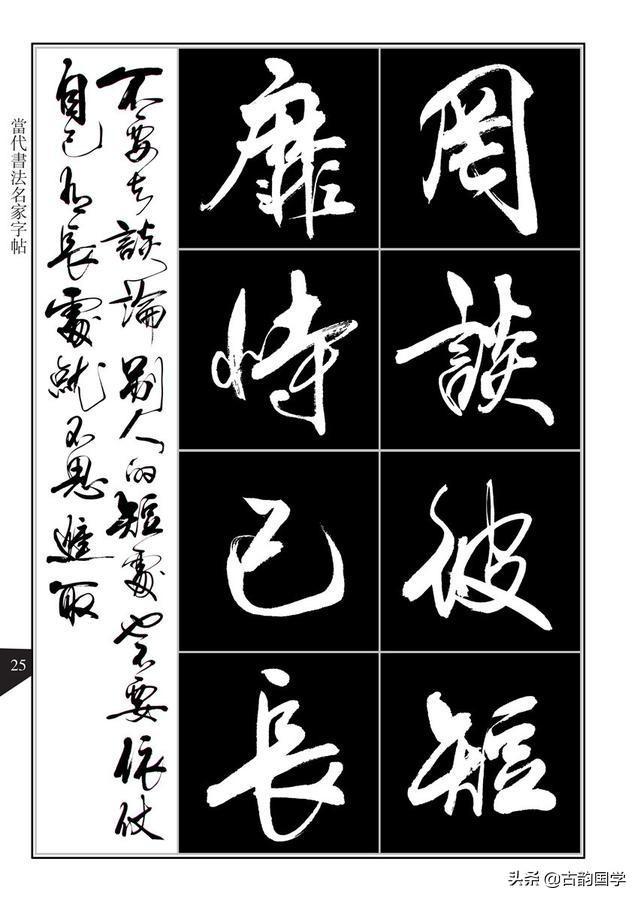 罔談彼短
靡恃己長
不要去談論別人的短處也不要依仗
自己有長處就不思進取
當代書法名家字帖
25
头条 @古韵国学